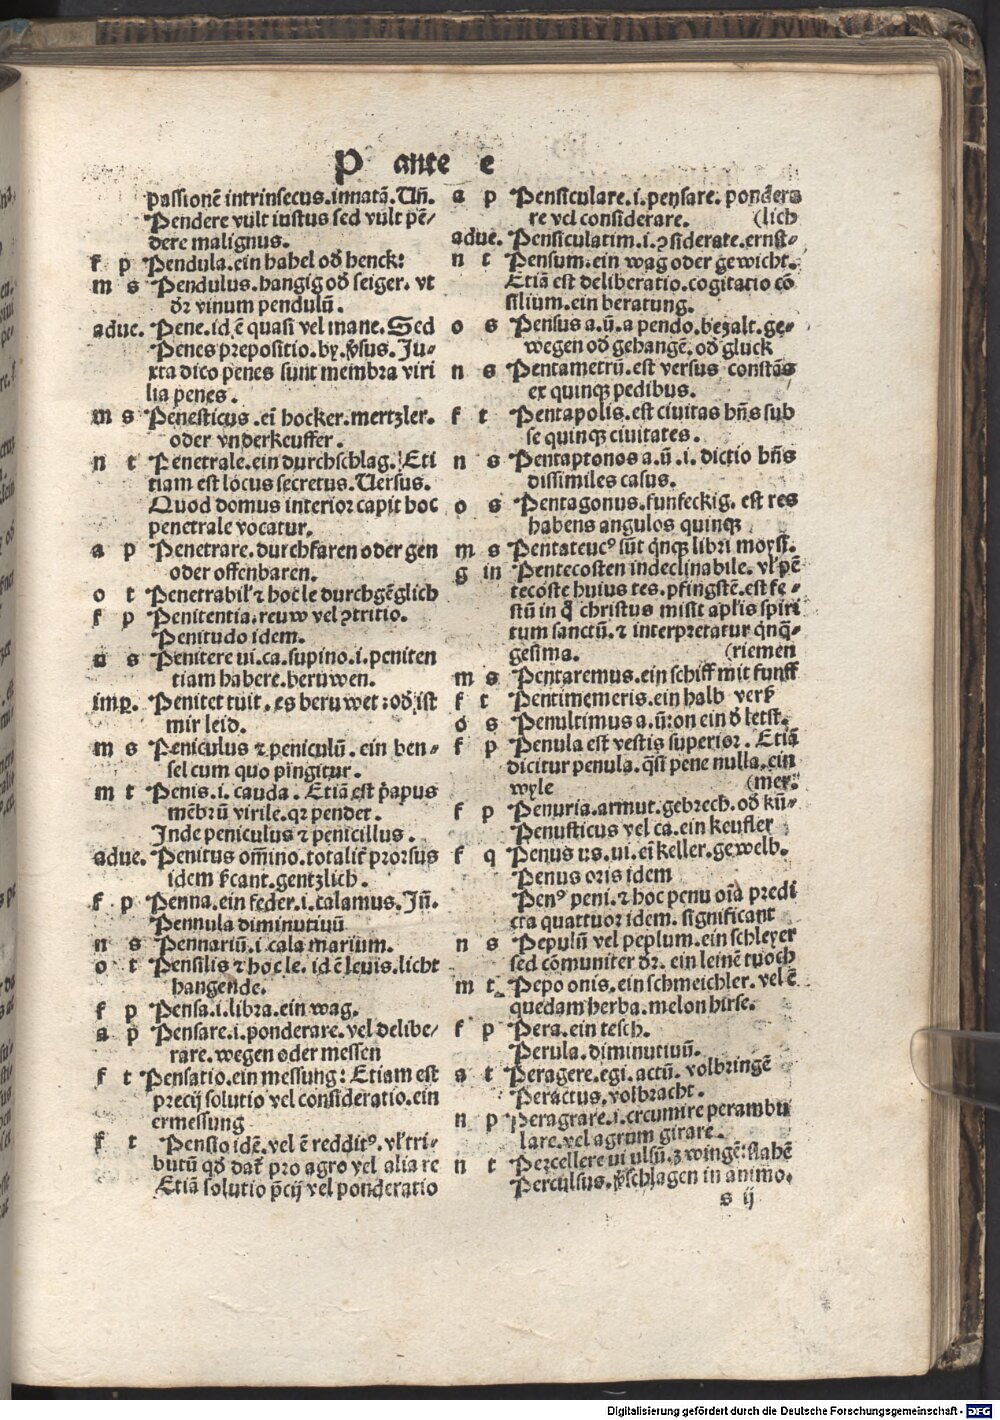 P ante e
passionē intrinsecus.innatā.Uñ.
Pendere vult iustus sed vult pē/
dere malignus.
f p Pendula.ein hahel od̕ henck:
m s Pendulus.hangig od̕ seiger. vt
dr̄ vinum pendulū.
adue. Pene.id ē quasi vel inane. Sed
Penes prepositio.by.ꝟsus. Iu-
xta dico penes sunt membra viri
lia penes.
m s Penesticus.eī hocker.mertzler.
oder vnderkeuffer.
n t Penetrale.ein durchschlag. Eti
tiam est locus secretus.Uersus.
Quod domus interior capit hoc
penetrale vocatur.
a p Penetrare.durchfaren oder gen
oder offenbaren.
o t Penetrabil' ⁊ hoc le durchgēglich
f p Penitentia.reuw vel ꝯtritio.
Penitudo idem.
n s Penitere ui.ca.supino.i.peniten
tiam habere.beruwen.
imp. Penitet tuit.es beruwet:od̕ ist
mir leid.
m s Peniculus ⁊ peniculū. ein ben-
sel cum quo pīngitur.
m t Penis.i.cauda. Etiā est p̄apus
mēbrū virile.qꝛ pendet.
Inde peniculus ⁊ penicillus.
adue. Penitus om̄ino.totalit̄ prorsus
idem ẜcant.gentzlich.
f p Penna.ein feder.i.calamus.Iñ.
Pennula diminutiuū
n s Pennariū.i.calamarium.
o t Pensilis ⁊ hoc le. id ē leuis.licht
hangende.
f p Pensa.i.libra.ein wag.
a p Pensare.i.ponderare.vel delibe-
rare.wegen oder messen
f t Pensatio.ein messung: Etiam est
precij solutio vel consideratio.ein
ermessung
f t Pensio idē.vel ē redditꝰ.vl' tri-
butū qd̕ dat̄ pro agro vel alia re
Etiā solutio p̄cij vel ponderatio
a p Pensiculare.i.pensare. pondera
re vel considerare. (lich
adue. Pensiculatim.i.ꝯsiderate.ernst-
n t Pensum.ein wag oder gewicht.
Etiā est deliberatio.cogitatio cō
silium.ein beratung.
o s Pensus a.ū.a pendo.bezalt.ge-
wegen od̕ gehangē.od̕ gluck
n s Pentametrū.est versus constās
ex quinqꝫ pedibus.
f t Pentapolis.est ciuitas hn̄s sub
se quinqꝫ ciuitates.
n s Pentaptonos a.ū.i. dictio hn̄s
dissimiles casus.
o s Pentagonus.funfeckig. est res
habens angulos quinqꝫ
m s Pentateucꝰ sūt q̇nqꝫ libri moysī.
g in Pentecosten indeclinabile. vl' pē
tecoste huius tes.pfingstē.est fe-
stū in q̄ christus misit apl'is spiri
tum sanctū.⁊ interpretatur q̇nq̄-
gesima. (riemen
m s Pentaremus.ein schiff mit funff
f t Pentimemeris.ein halb verß
o s Penultimus a.ū:on ein d̕ letst.
f p Penula est vestis superior. Etiā
dicitur penula.q̄si pene nulla.ein
wyle (mer:
f p Penuria.armut.gebrech.od̕ kū-
Penusticus vel ca.ein keufler
f q Penus us.ui.eī keller.gewelb.
Penus oris idem
Penꝰ peni.⁊ hoc penu oīa predi
cta quattuor idem. significant
n s Pepulū vel peplum.ein schleyer
sed cōmuniter dr̄. ein leinē tuoch
m t Pepo onis.ein schmeichler. vel ē
quedam herba.melon hirse.
f p Pera.ein tesch.
Perula.diminutiuū.
a t Peragere.egi.actū. volbringē
Peractus.volbracht.
n p Peragrare.i.crcumire perambu
lare.vel agrum girare.
n t Percellere ui ulsū.zwingē:slahē
Perculsus.ꝟschlagen in animo.
s ij
Digitalisierung gefördert durch die Deutsche Forschungsgemeinschaft - DFG